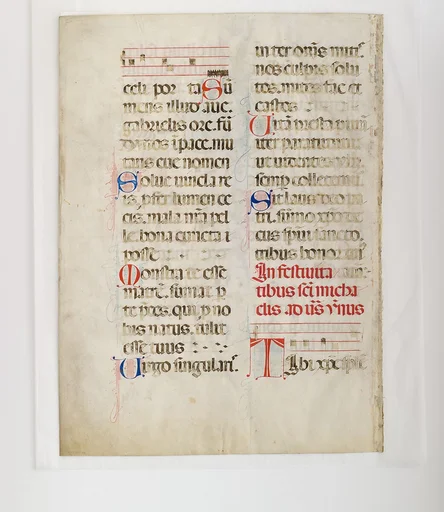 celi por ta Sū
mens illud ave.
gabrielis ore. fū
da nos ī pace. mu
tans eve nomen
Solve vincla re
is, profer lumen ce
cis. mala nr̄a pel
le bona cuncta
posce
Monstra te esse
matrē. sumat p
te preces. qui p no
bis natus. tulit
esse tuus
Virgo singularis
in ter om̄s mitis
nos culpis solu
tos. mites fac et
castos
Vitā presta
iter para
ut videntes
semp collete
Sit laus deo pa
tri. sūmo xpo de
cus spiritui sancto.
tribus honor
In festivita
tibus sc̄i micha
elis. ad vs̄ ymnus
Tibi xpe sple